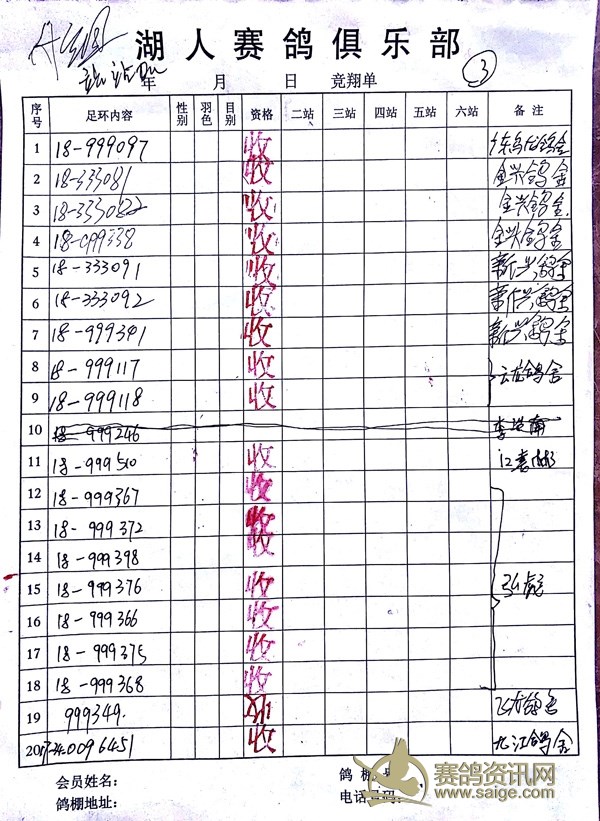 湖人赛鸽俱乐部
年 月 日 竞翔单 3
序号 足环内容 性别 羽色 目别 资格 二站 三站 四站 五站 六站 备注
1 18-999097 收
2 18-333081 收 金兴鸽舍
3 18-333082 收 金兴鸽舍
4 18-099338 收 金兴鸽舍
5 18-333091 收 新兴鸽舍
6 18-333092 收 新兴鸽舍
7 18-999341 收 新兴鸽舍
8 18-999117 收 云龙鸽舍
9 18-999118 收
10 18-999246
11 18-999510 收
12 18-999367 收
13 18-999372 收
14 18-999398 收
15 18-999376 收
16 18-999366 收
17 18-999375 收
18 18-999368 收
19 999349. 飞龙鸽舍
20 0096451 收 九江鸽舍
会员姓名： 鸽棚
鸽棚地址： 电话号码：
赛鸽资讯网
www.saige.com